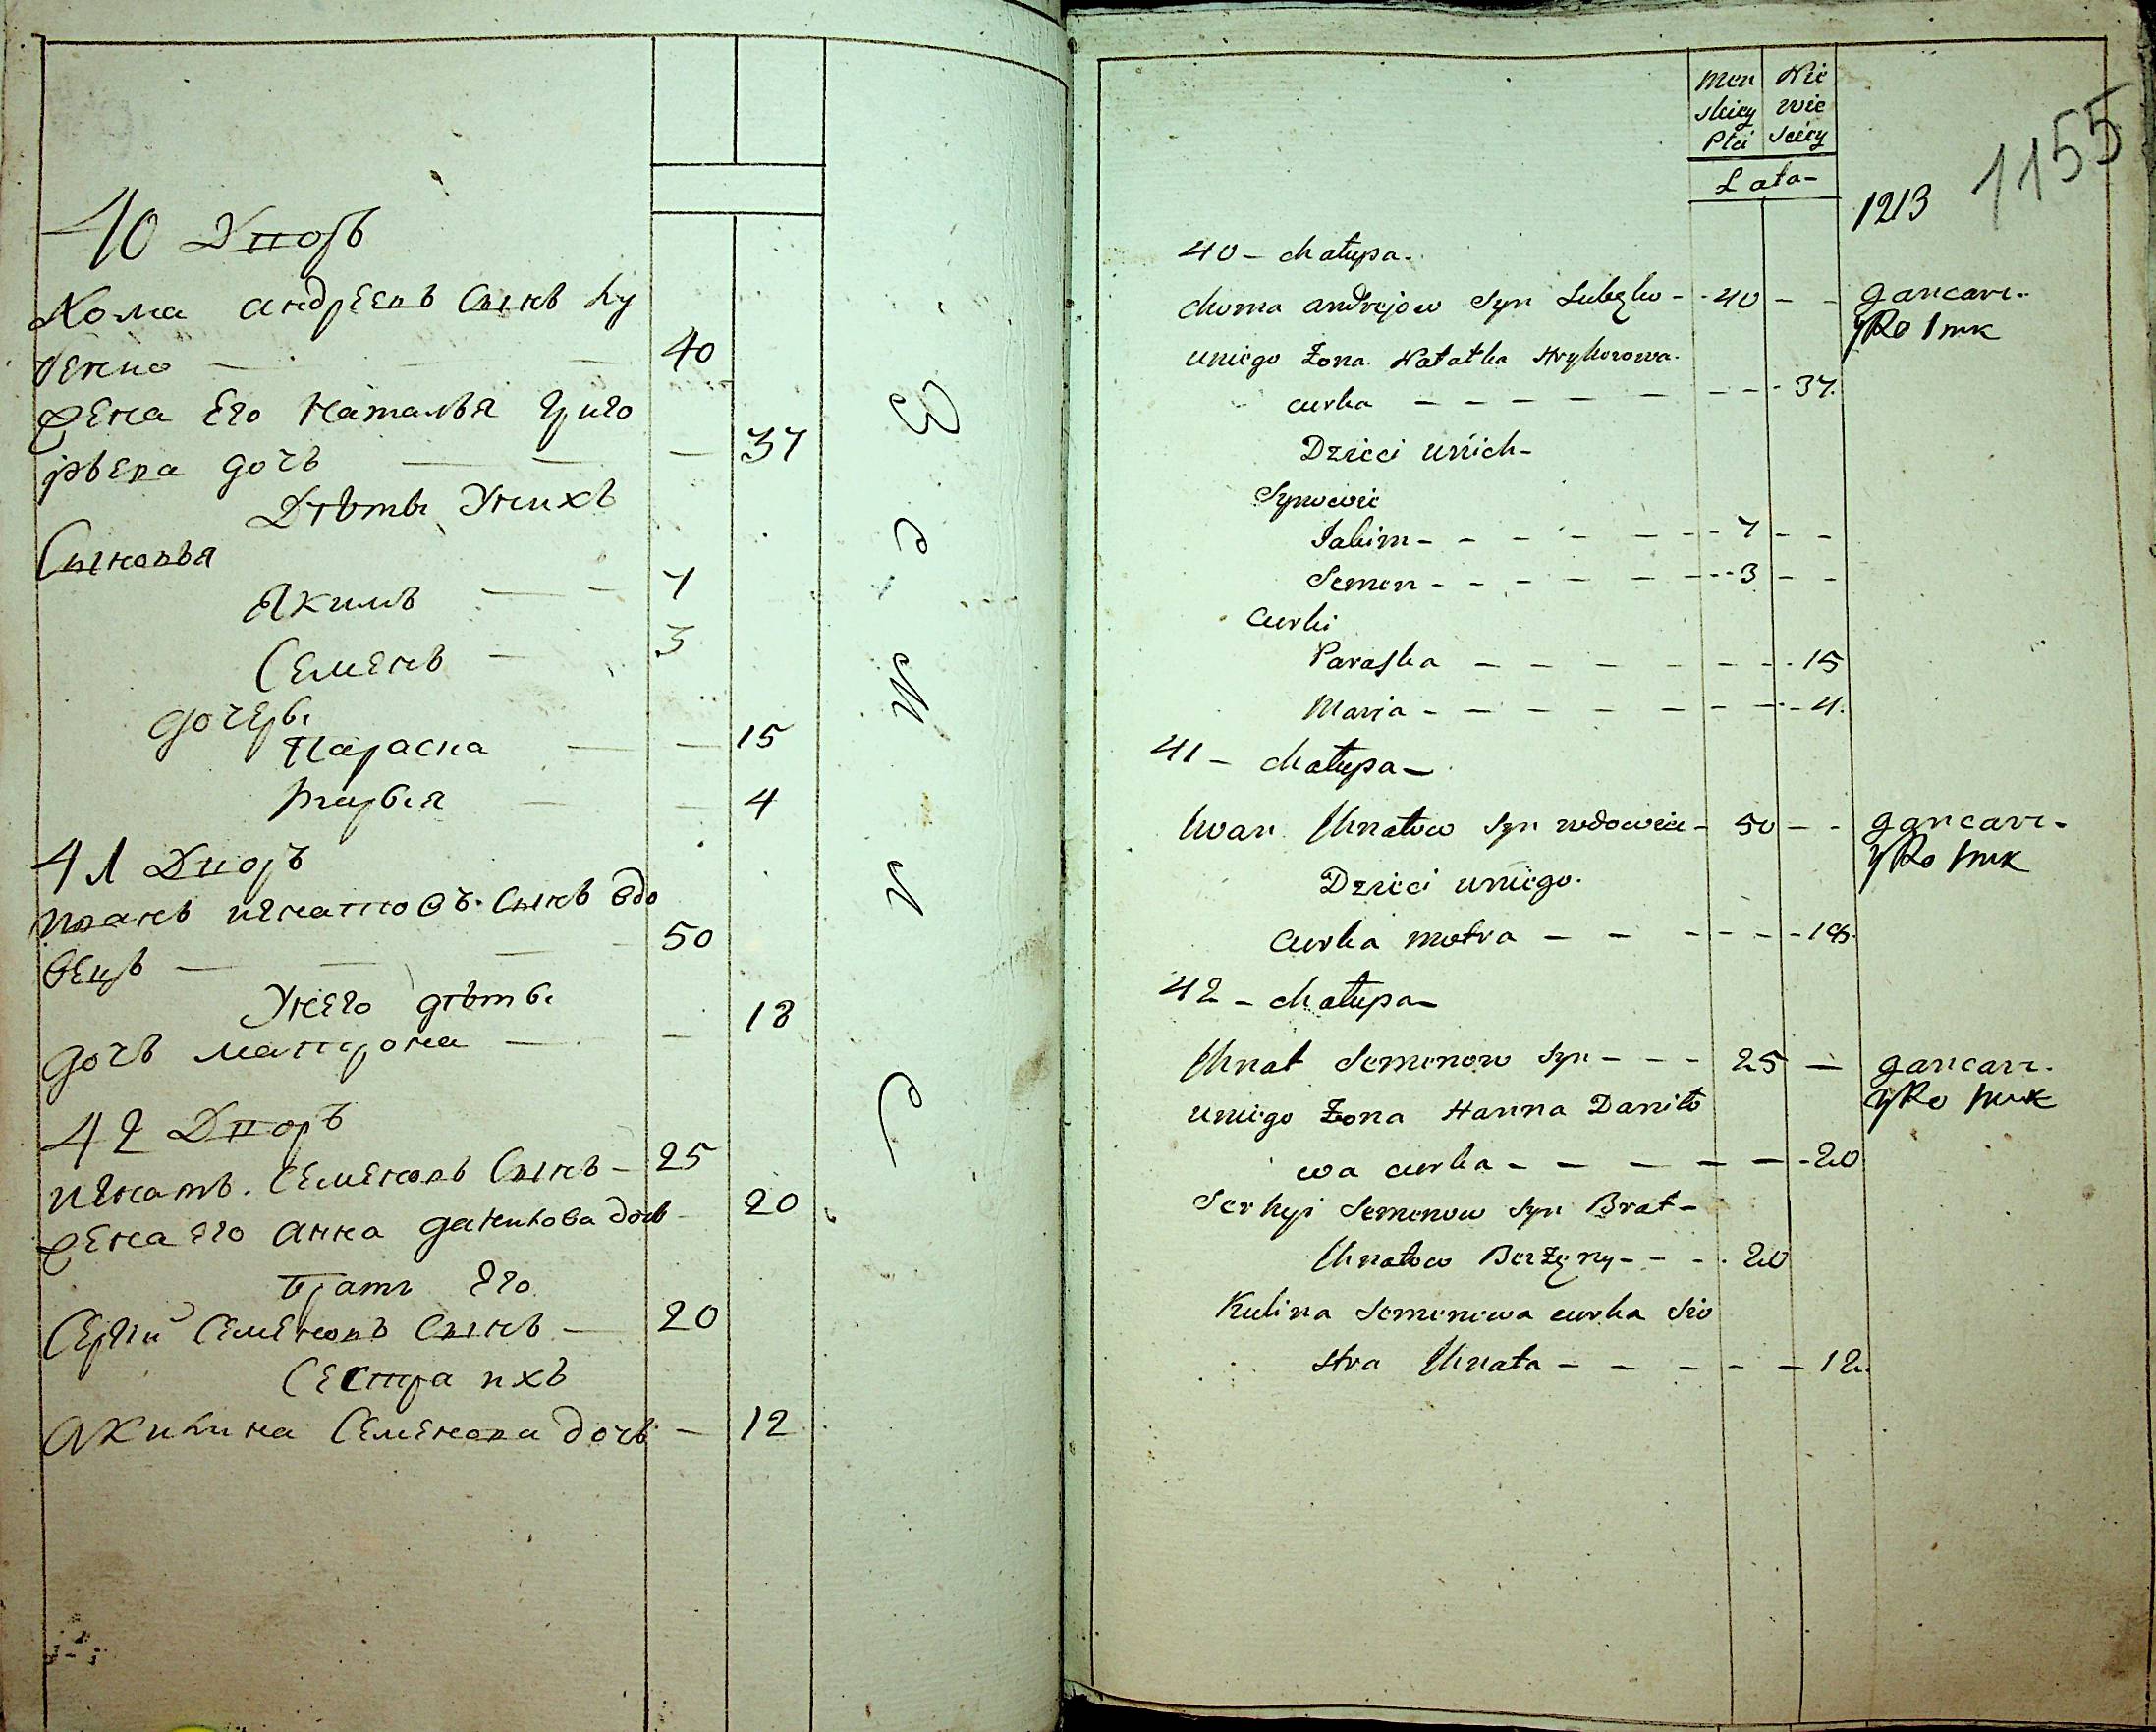 40 Дворъ
Хома андрѣевъ Сынъ Ку
бечко — 40
жена Его Наталья Григо
рьева дочь — — — 37
Дѣти Унихъ
Сыновья
Якимъ — — 7
Семенъ — 3
дочери
Параска — — 15
Марья — — 4
41 Дворъ
иванъ игнатовъ Сынъ вдо
вецъ — — — 50
Унего дѣти
дочь матрона — — 18
42 Дворъ
игнатъ Семеновъ Сынъ — 25
жена его Анна данилова дочь — 20
братъ Его
Сергѣй Семеновъ Сынъ — 20
Сестра ихъ
Акилина Семенова дочь — 12
Men Nie
skiey wie
Płci sciey
Lata —
1213
1155
40 — Chałupa.
Choma Andrejow Syn — 40 — — gancarz.
uniego Żona Natałka Hryhorowa
curka — — — — — — — 37.
Dzieci unich —
Synowie
Jakim — — — — — — 7 — —
Semen — — — — — — 3 — —
Curki
Paraska — — — — — — 15
Marja — — — — — — — 4.
41 — Chałupa —
Iwan Ihnatow Syn wdowiec — 50 — — gancarz.
Dzieci uniego.
Curka Motra — — — — — 18.
42 — Chałupa —
Ihnat Semenow Syn — — — 25 — gancarz.
uniego Żona Hanna Daniło
wa curka — — — — — — 20
Serhyi Semenow Syn Brat —
Ihnatow Bezżęny — — — 20
Kulina Semenowa curka Sio
stra Ihnata — — — — — 12.